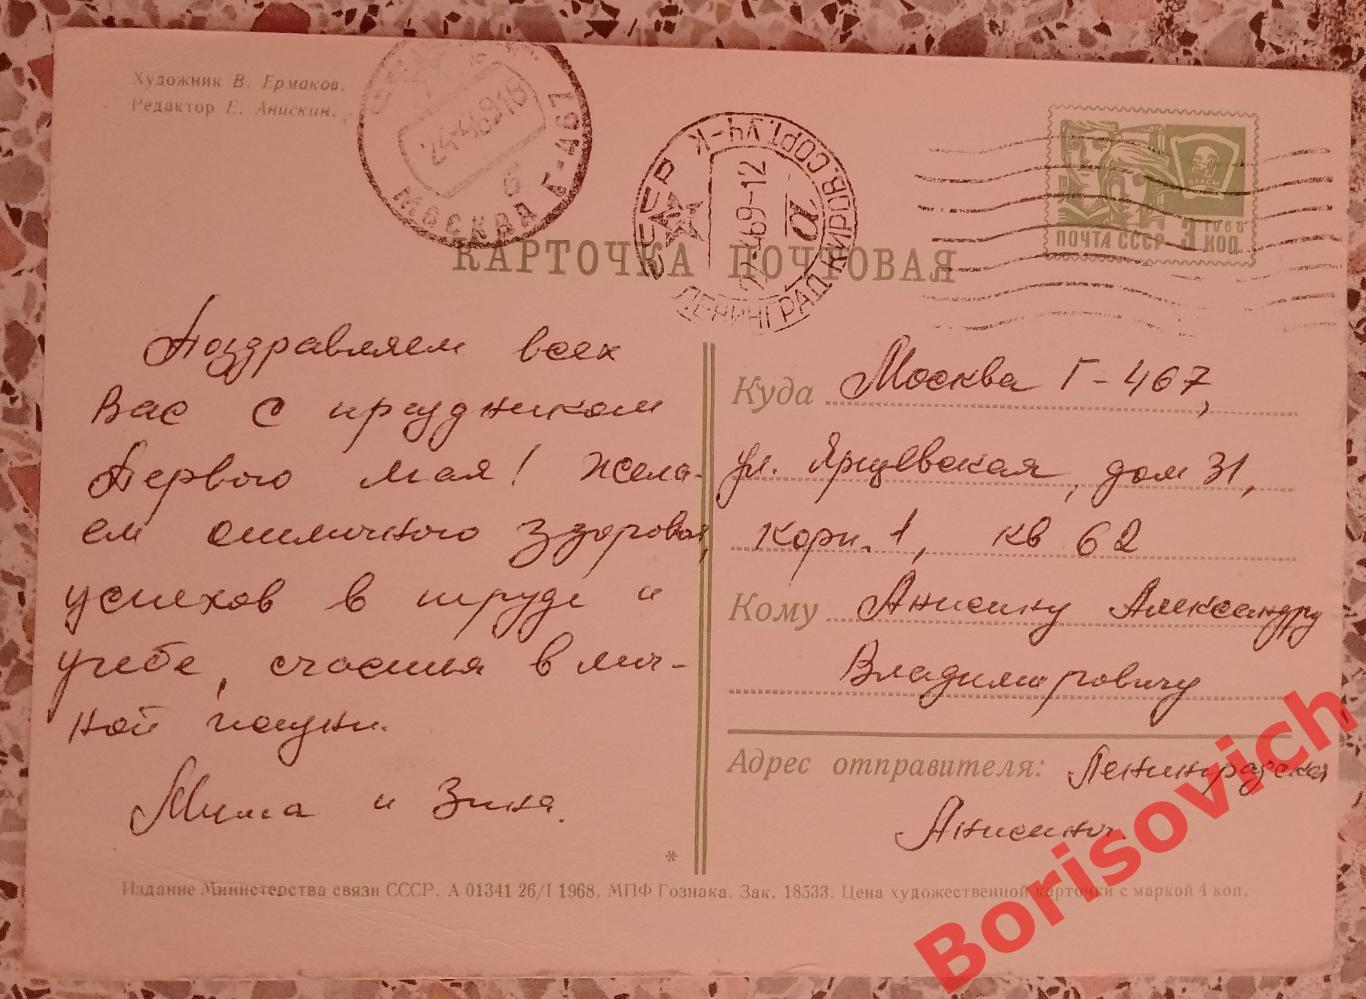 Художник В. Ермаков.
Редактор Е. Анискин.
МОСКВА Г-467
24-4-69 16
б
СССР
22-469-12
Ю
ЛЕНИНГРАД-КИРОВ.СОРТ.УЧ-К
ПОЧТА СССР 3 КОП
КАРТОЧКА ПОЧТОВАЯ
Поздравляем всех
Вас с праздником
Первого мая! Жела-
ем отличного здоровья,
успехов в труде и
учебе, счастья в лич-
ной жизни.
Миша и Зина.
Куда Москва Г-467,
ул. Ярцевская, дом 31,
корп. 1, кв 62
Кому Анисину Александру
Владимировичу
Адрес отправителя: Ленинградские
Анисины.
*
Издание Министерства связи СССР. А 01341 26/I 1968. МПФ Гознака. Зак. 18533. Цена художественной карточки с маркой 4 коп.
Borisovich